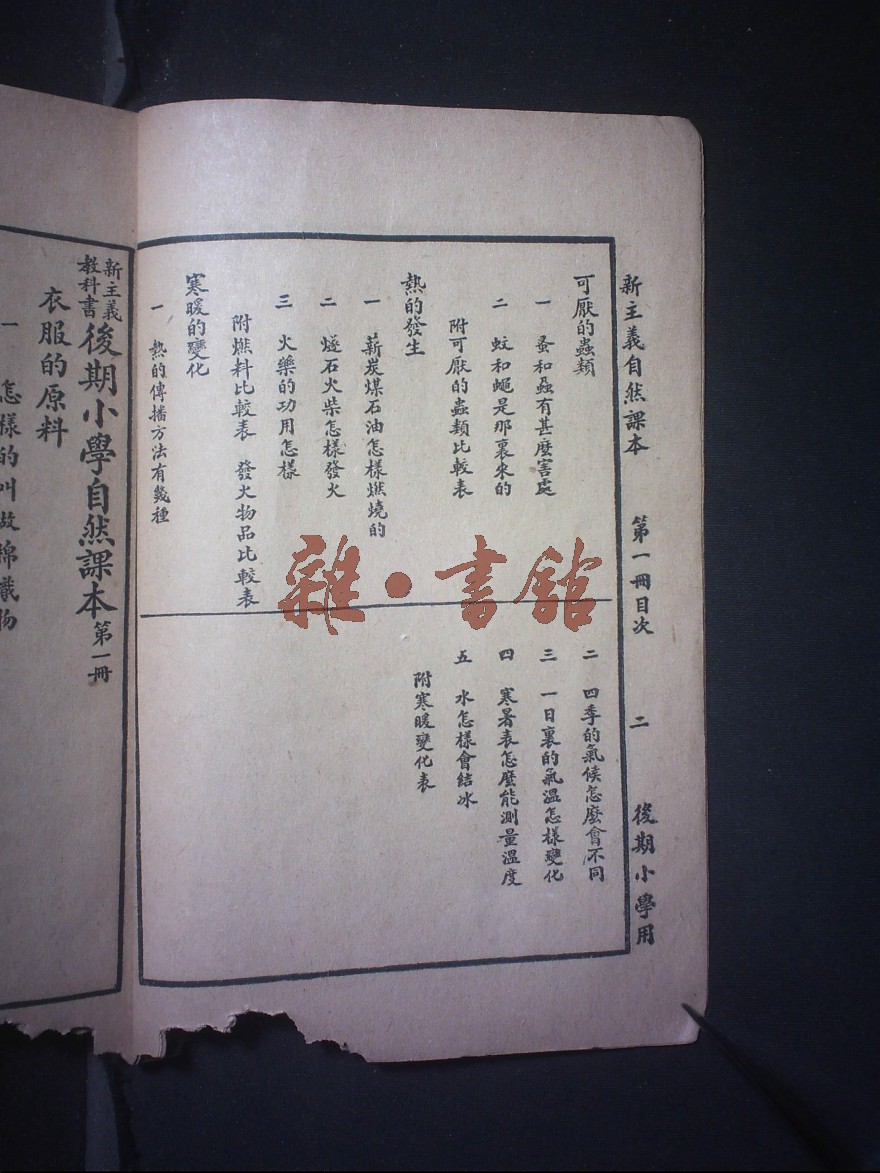 新主義自然課本　第一冊目次　二　後期小學用
可厭的蟲類
一　蚤和蝨有甚麼害處
二　蚊和蠅是那裏來的
附可厭的蟲類比較表
熱的發生
一　薪炭煤石油怎樣燃燒的
二　燧石火柴怎樣發火
三　火藥的功用怎樣
附燃料比較表　發火物品比較表
寒暖的變化
一　熱的傳播方法有幾種
二　四季的氣候怎麼會不同
三　一日裏的氣溫怎樣變化
四　寒暑表怎麼能測量溫度
五　水怎樣會結冰
附寒暖變化表
新主義教科書後期小學自然課本第一冊
衣服的原料
一　怎樣的叫做棉織物
雜・書館